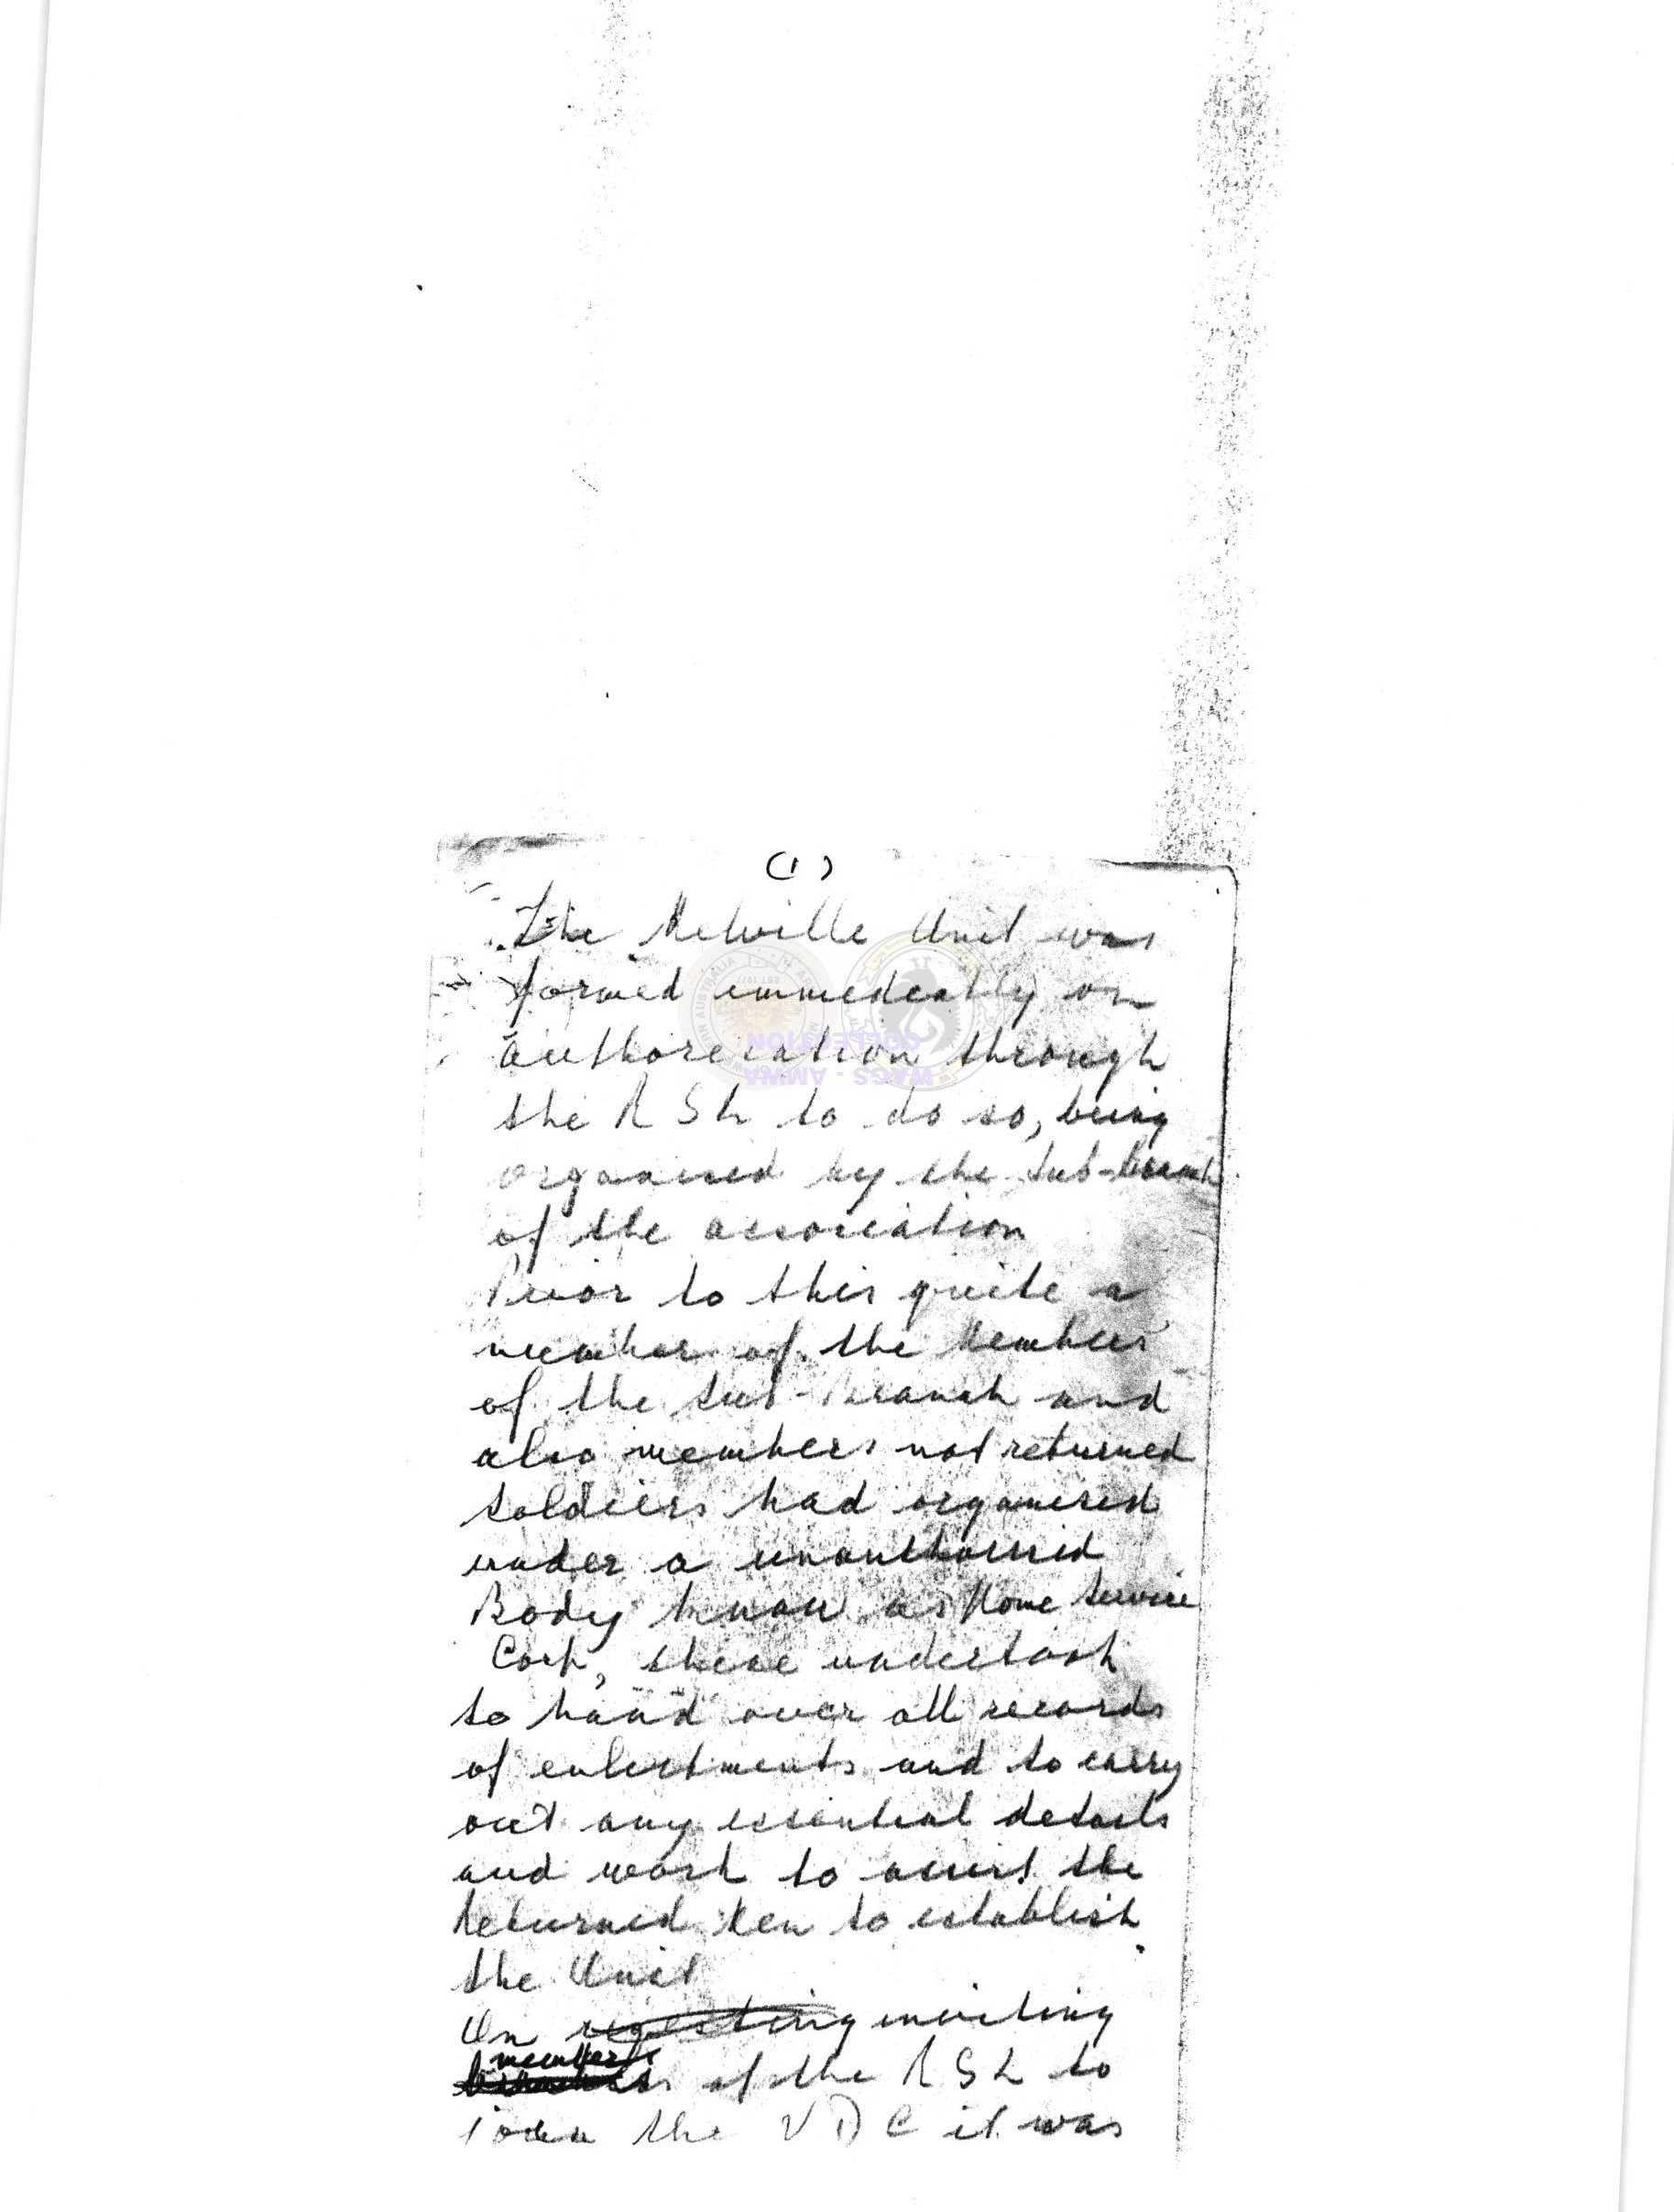 (1)
The Melville Unit was
formed immedeatly on
authoresation through
the R S L to do so, being
organised by the Sub-branch
of the association
Prior to this quite a
number of the Members
of the Sub-Branch and
also members not returned
Soldiers had organised
under a unauthorised
Body known as Home Service
Corp, these undertook
to hand over all records
of enlistments and to carry
out any essential details
and work to assist the
Returned Men to establish
the Unit
On inviting
members of the R S L to
join the V D C it was
WAGS - AMWA
COLLECTION